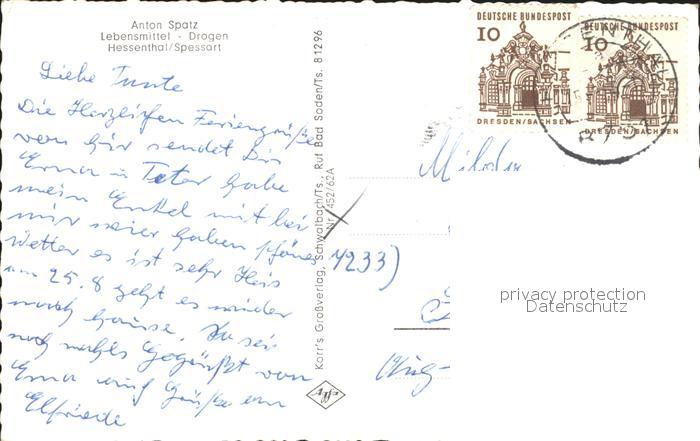 Anton Spatz
Lebensmittel - Drogen
Hessenthal/Spessart
Liebe Tante
Die Herzlichen Feriengrüße
von hier sendet Dir
Erna u
mein Enkel mit bei
mir wier haben schönes
Wetter es ist sehr Heis
am 25.8 geht es wieder
nach Hause. Du sei
noch mahls Gegrüßt von
Erna auf Grüße an
Elfriede
Korr's Großverlag, Schwalbach/Ts., Ruf Bad Soden/Ts. 81296
Nr. 452/62A
Agfa
DEUTSCHE BUNDESPOST
10
DRESDEN/SACHSEN
DEUTSCHE BUNDESPOST
10
DRESDEN/SACHSEN
4233)
privacy protection
Datenschutz